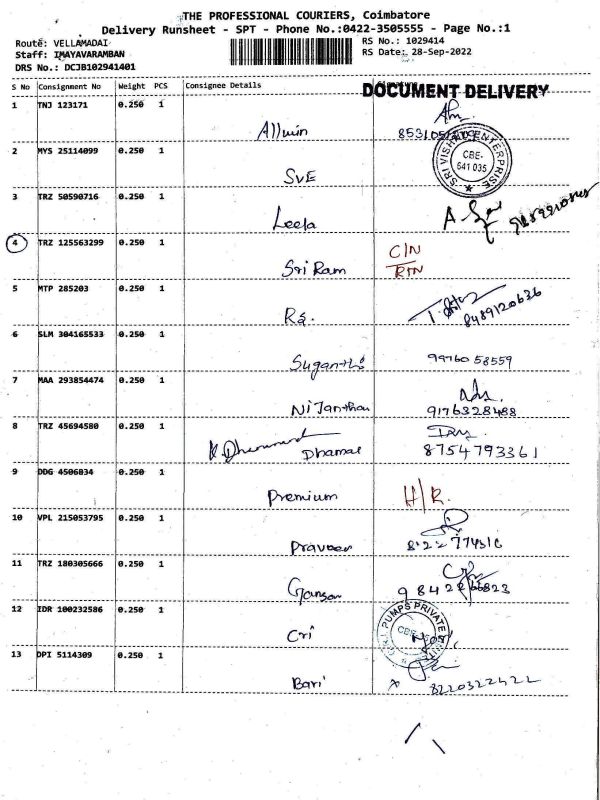 THE PROFESSIONAL COURIERS, Coimbatore
Delivery Runsheet - SPT - Phone No.:0422-3505555 - Page No.:1
Route: VELLAMADAI RS No.: 1029414
Staff: IMAYAVARAMBAN RS Date: 28-Sep-2022
DRS No.: DCJB102941401
S No Consignment No Weight PCS Consignee Details
DOCUMENT DELIVERY
1 TNJ 123171 0.250 1 Allwin
2 MYS 25114099 0.250 1 SVE
SRI VISHNU ENTERPRISE CBE- 641 035
3 TRZ 50590716 0.250 1 Leela
4 TRZ 125563299 0.250 1 Sri Ram C/N RTN
5 MTP 285203 0.250 1 Rs. 8489120636
6 SLM 304165533 0.250 1 Suganthi 9976058559
7 MAA 293854474 0.250 1 Nijanthan 9176328488
8 TRZ 45694580 0.250 1 Dhamal 8754793361
9 DDG 4506034 0.250 1 Premium H/R.
10 VPL 215053795 0.250 1 Praveen
11 TRZ 180305666 0.250 1 Ganson
12 IDR 100232586 0.250 1 Cri
C.R.I. PUMPS PRIVATE
13 DPI 5114309 0.250 1 Bari 8220322422